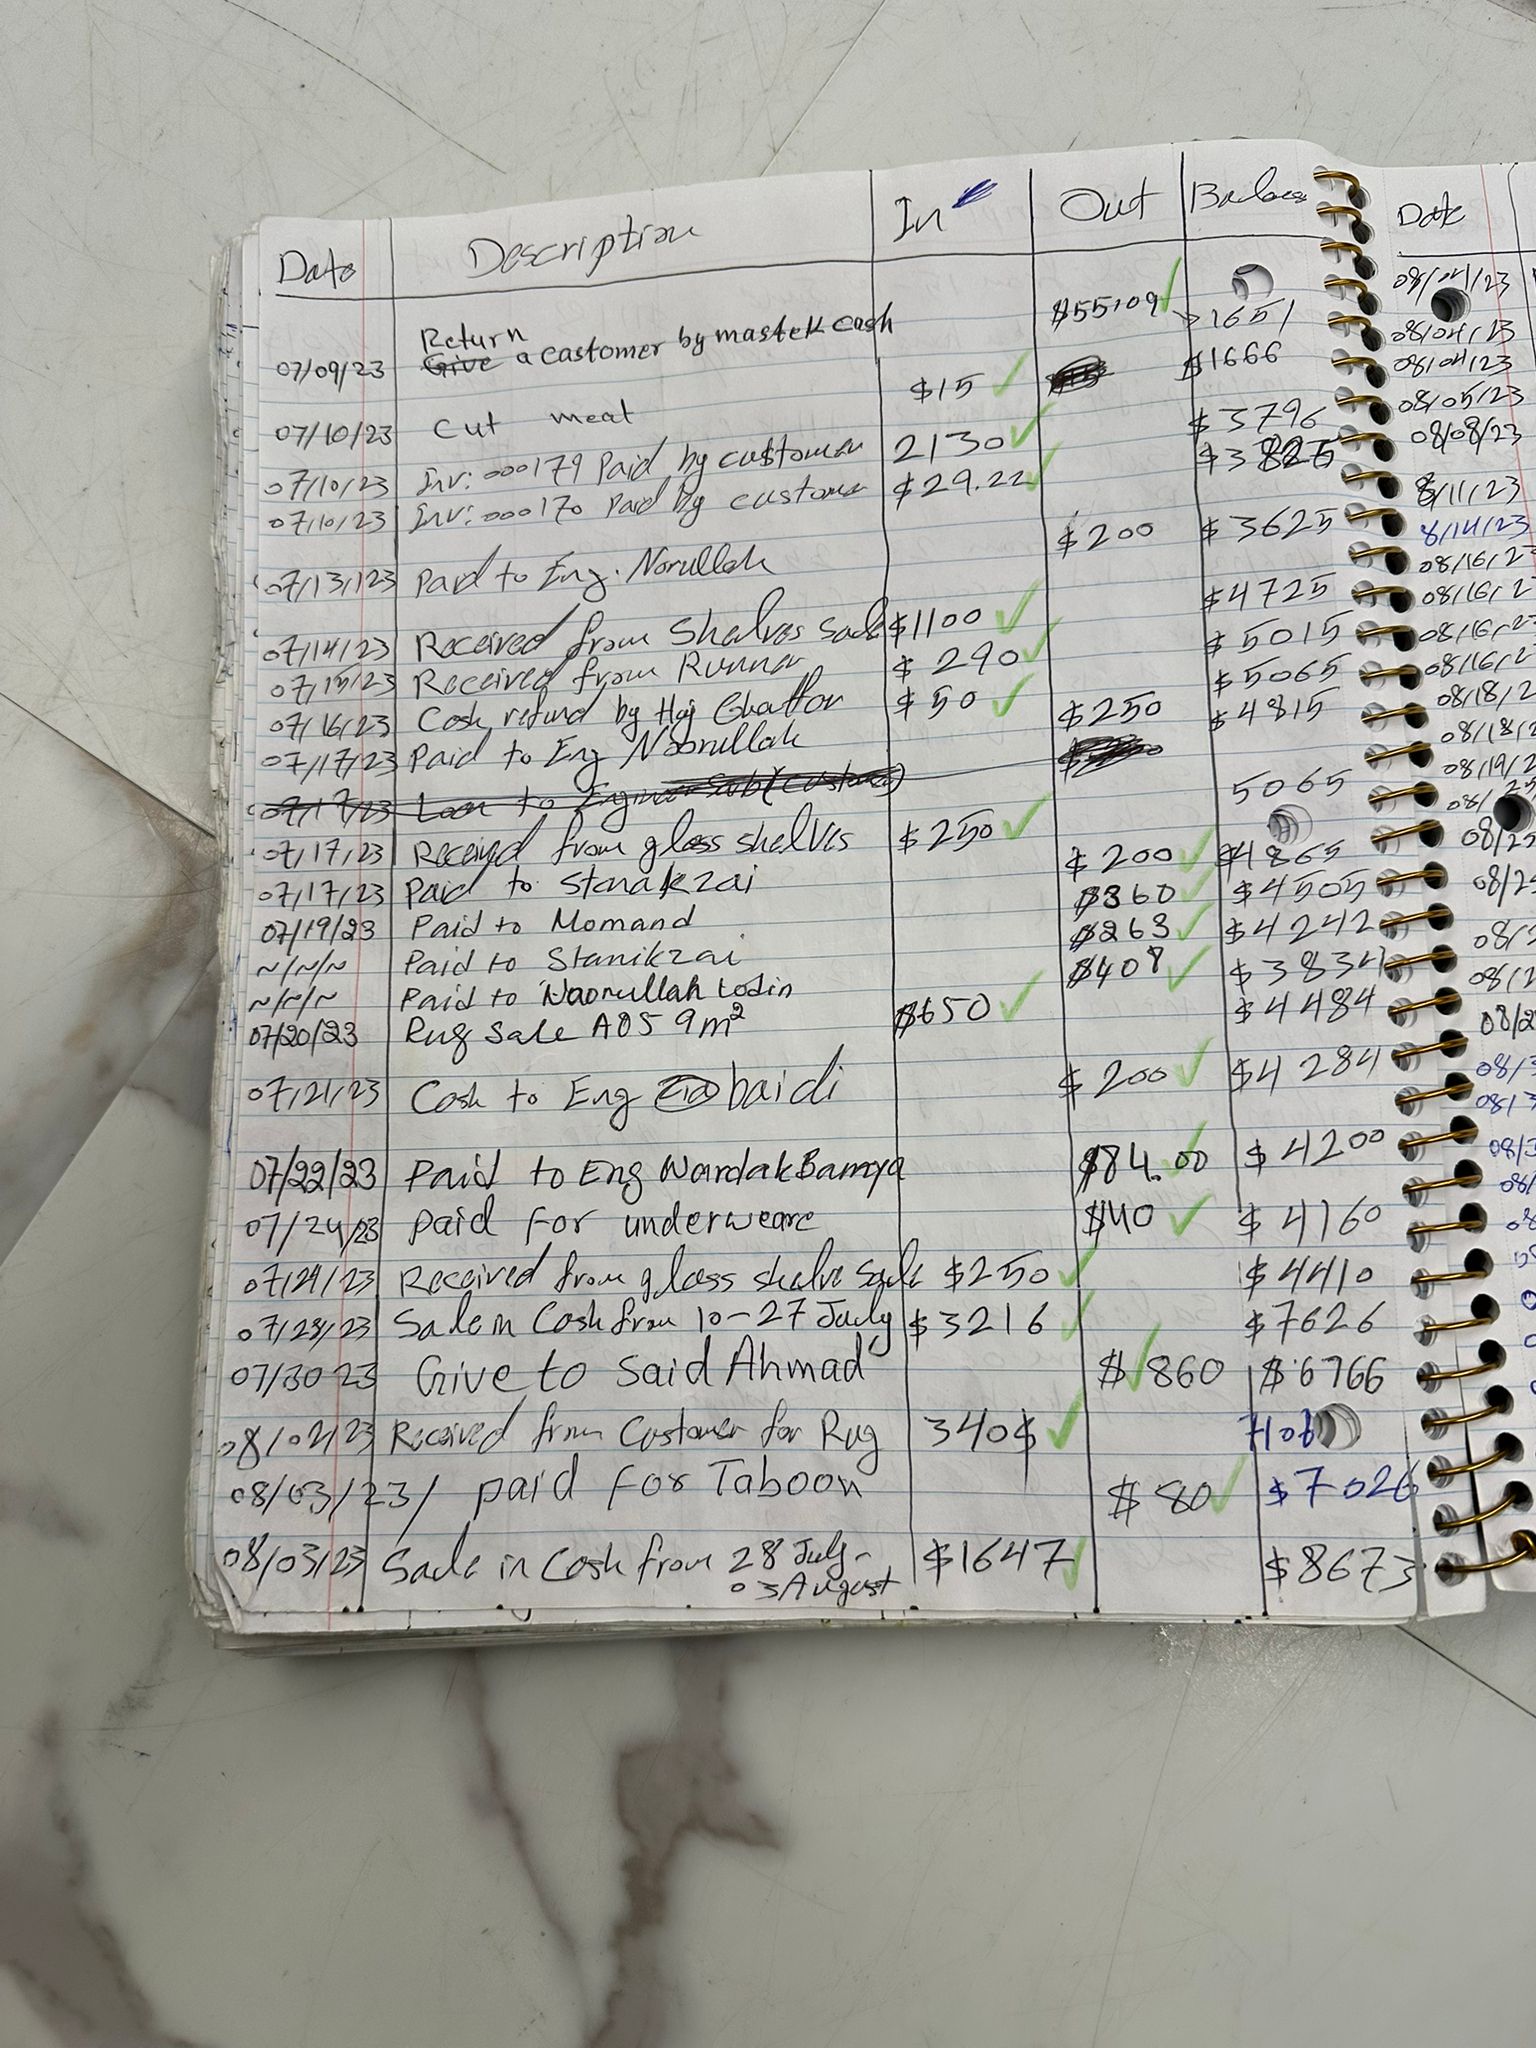 Date Description In Out Balance
07/09/23 Return Give a castomer by mastek cash $55.09 $1651
07/10/23 Cut meat $15 $1666
07/10/23 Inv: 000179 Paid by customer 2130 $3796
07/10/23 Inv: 000170 Paid by customer $29.22 $3825
07/13/123 Paid to Eng. Norullah $200 $3625
07/14/23 Received from Shelves Sale $1100 $4725
07/15/23 Received from Runner $290 $5015
07/16/23 Cash refund by Haj Ghaffor $50 $5065
07/17/23 Paid to Eng Noorullah $250 $4815
07/17/23 Loan to Engineer Sab (customer)
07/17/23 Received from glass shelves $250 5065
07/17/23 Paid to Stanakzai $200 $4865
07/19/23 Paid to Momand $360 $4505
~/~/~ Paid to Stanikzai $263 $4242
~/~/~ Paid to Naorullah Lodin $408 $3834
07/20/23 Rug Sale A05 9m² $650 $4484
07/21/23 Cash to Eng baidi $200 $4284
07/22/23 Paid to Eng Wardak Bamya $84.00 $4200
07/24/23 paid for underweare $40 $4160
07/24/23 Received from glass shelve Sale $250 $4410
07/28/23 Sale in Cash from 10-27 July $3216 $7626
07/30 23 Give to Said Ahmad $860 $6766
08/02/23 Received from Customer for Rug 340$ 7106
08/03/23/ paid for Taboon $80 $7026
08/03/23 Sale in Cash from 28 July - $1647 $8673
03 August
Date
08/04/23
08/04/23
08/04/23
08/05/23
08/08/23
8/11/23
8/14/23